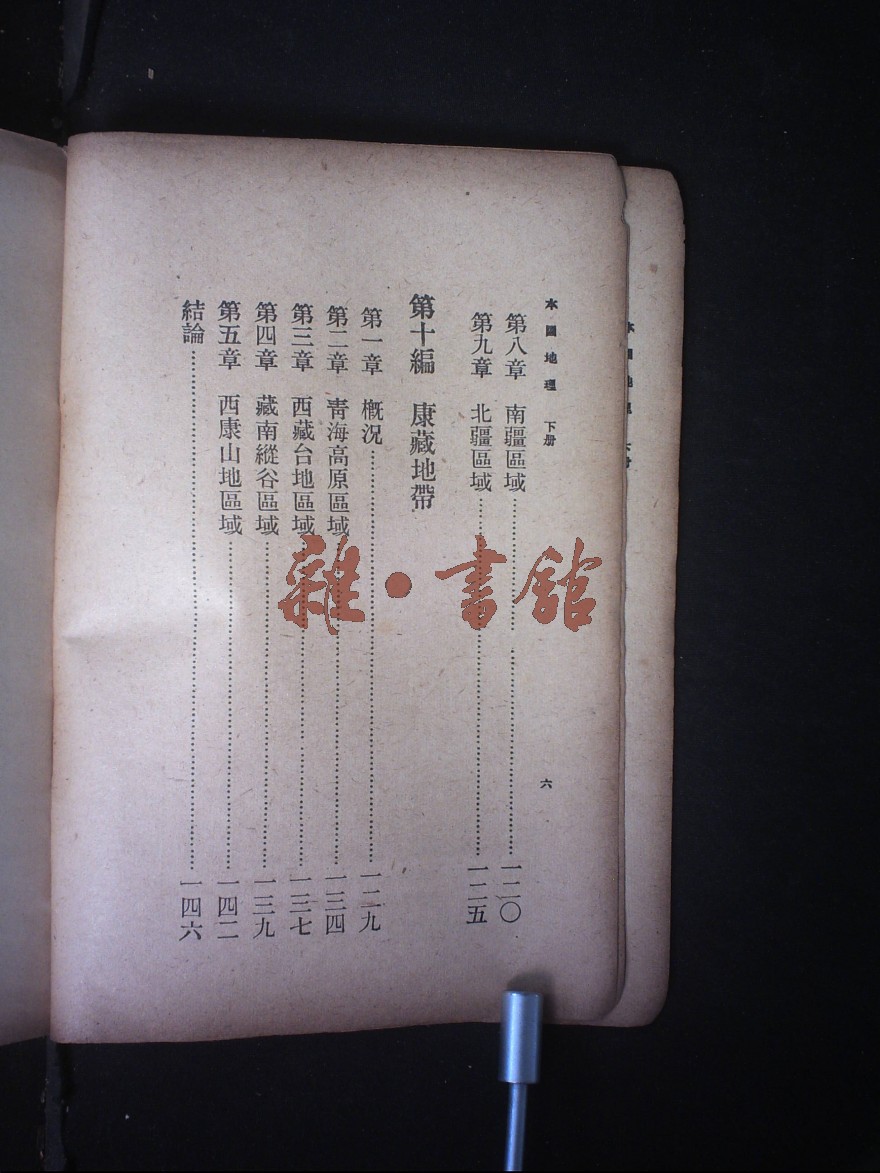 本國地理 下册
六
第八章 南疆區域……一二〇
第九章 北疆區域……一二五
第十編 康藏地帶
第一章 概況……一二九
第二章 青海高原區域……一三四
第三章 西藏台地區域……一三七
第四章 藏南縱谷區域……一三九
第五章 西康山地區域……一四二
結論……一四六
雜·書館